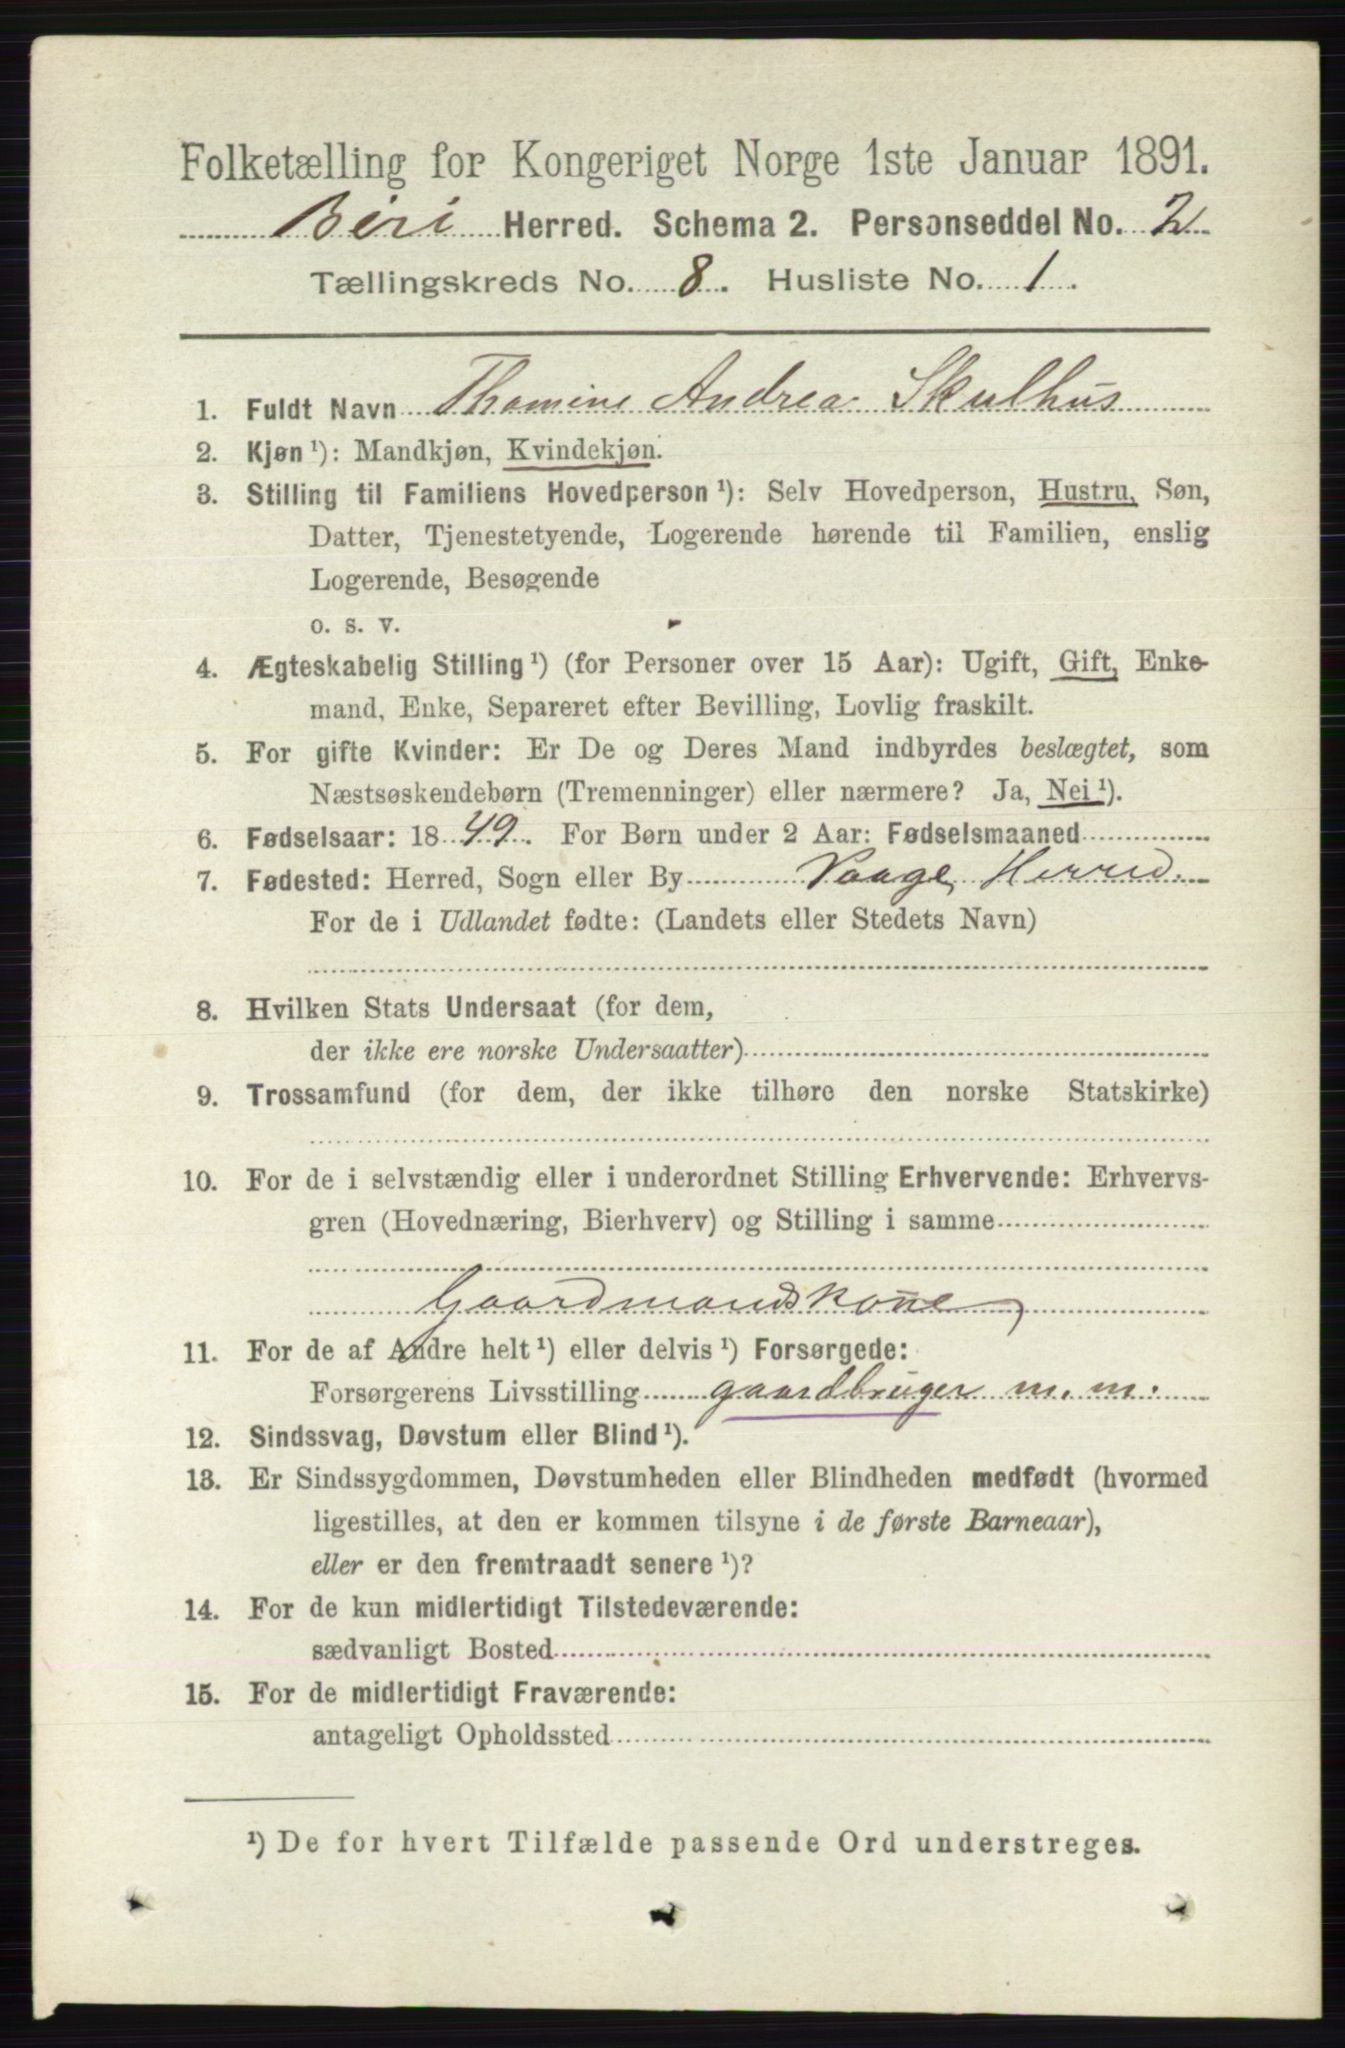 Folketælling for Kongeriget Norge 1ste Januar 1891.
Biri Herred. Schema 2. Personseddel No. 2
Tællingskreds No. 8. Husliste No. 1.
1. Fuldt Navn Thomine Andrea Skulhus
2. Kjøn ¹): Mandkjøn, Kvindekjøn.
3. Stilling til Familiens Hovedperson ¹): Selv Hovedperson, Hustru, Søn,
Datter, Tjenestetyende, Logerende hørende til Familien, enslig
Logerende, Besøgende
o. s. v.
4. Ægteskabelig Stilling ¹) (for Personer over 15 Aar): Ugift, Gift, Enke-
mand, Enke, Separeret efter Bevilling, Lovlig fraskilt.
5. For gifte Kvinder: Er De og Deres Mand indbyrdes beslægtet, som
Næstsøskendebørn (Tremenninger) eller nærmere? Ja, Nei ¹).
6. Fødselsaar: 1849. For Børn under 2 Aar: Fødselsmaaned
7. Fødested: Herred, Sogn eller By Vaage, Herred.
For de i Udlandet fødte: (Landets eller Stedets Navn)
8. Hvilken Stats Undersaat (for dem,
der ikke ere norske Undersaatter)
9. Trossamfund (for dem, der ikke tilhøre den norske Statskirke)
10. For de i selvstændig eller i underordnet Stilling Erhvervende: Erhvervs-
gren (Hovednæring, Bierhverv) og Stilling i samme
Gaardmandskone
11. For de af Andre helt ¹) eller delvis ¹) Forsørgede:
Forsørgerens Livsstilling gaardbruger m. m.
12. Sindssvag, Døvstum eller Blind ¹).
13. Er Sindssygdommen, Døvstumheden eller Blindheden medfødt (hvormed
ligestilles, at den er kommen tilsyne i de første Barneaar),
eller er den fremtraadt senere ¹)?
14. For de kun midlertidigt Tilstedeværende:
sædvanligt Bosted
15. For de midlertidigt Fraværende:
antageligt Opholdssted
¹) De for hvert Tilfælde passende Ord understreges.